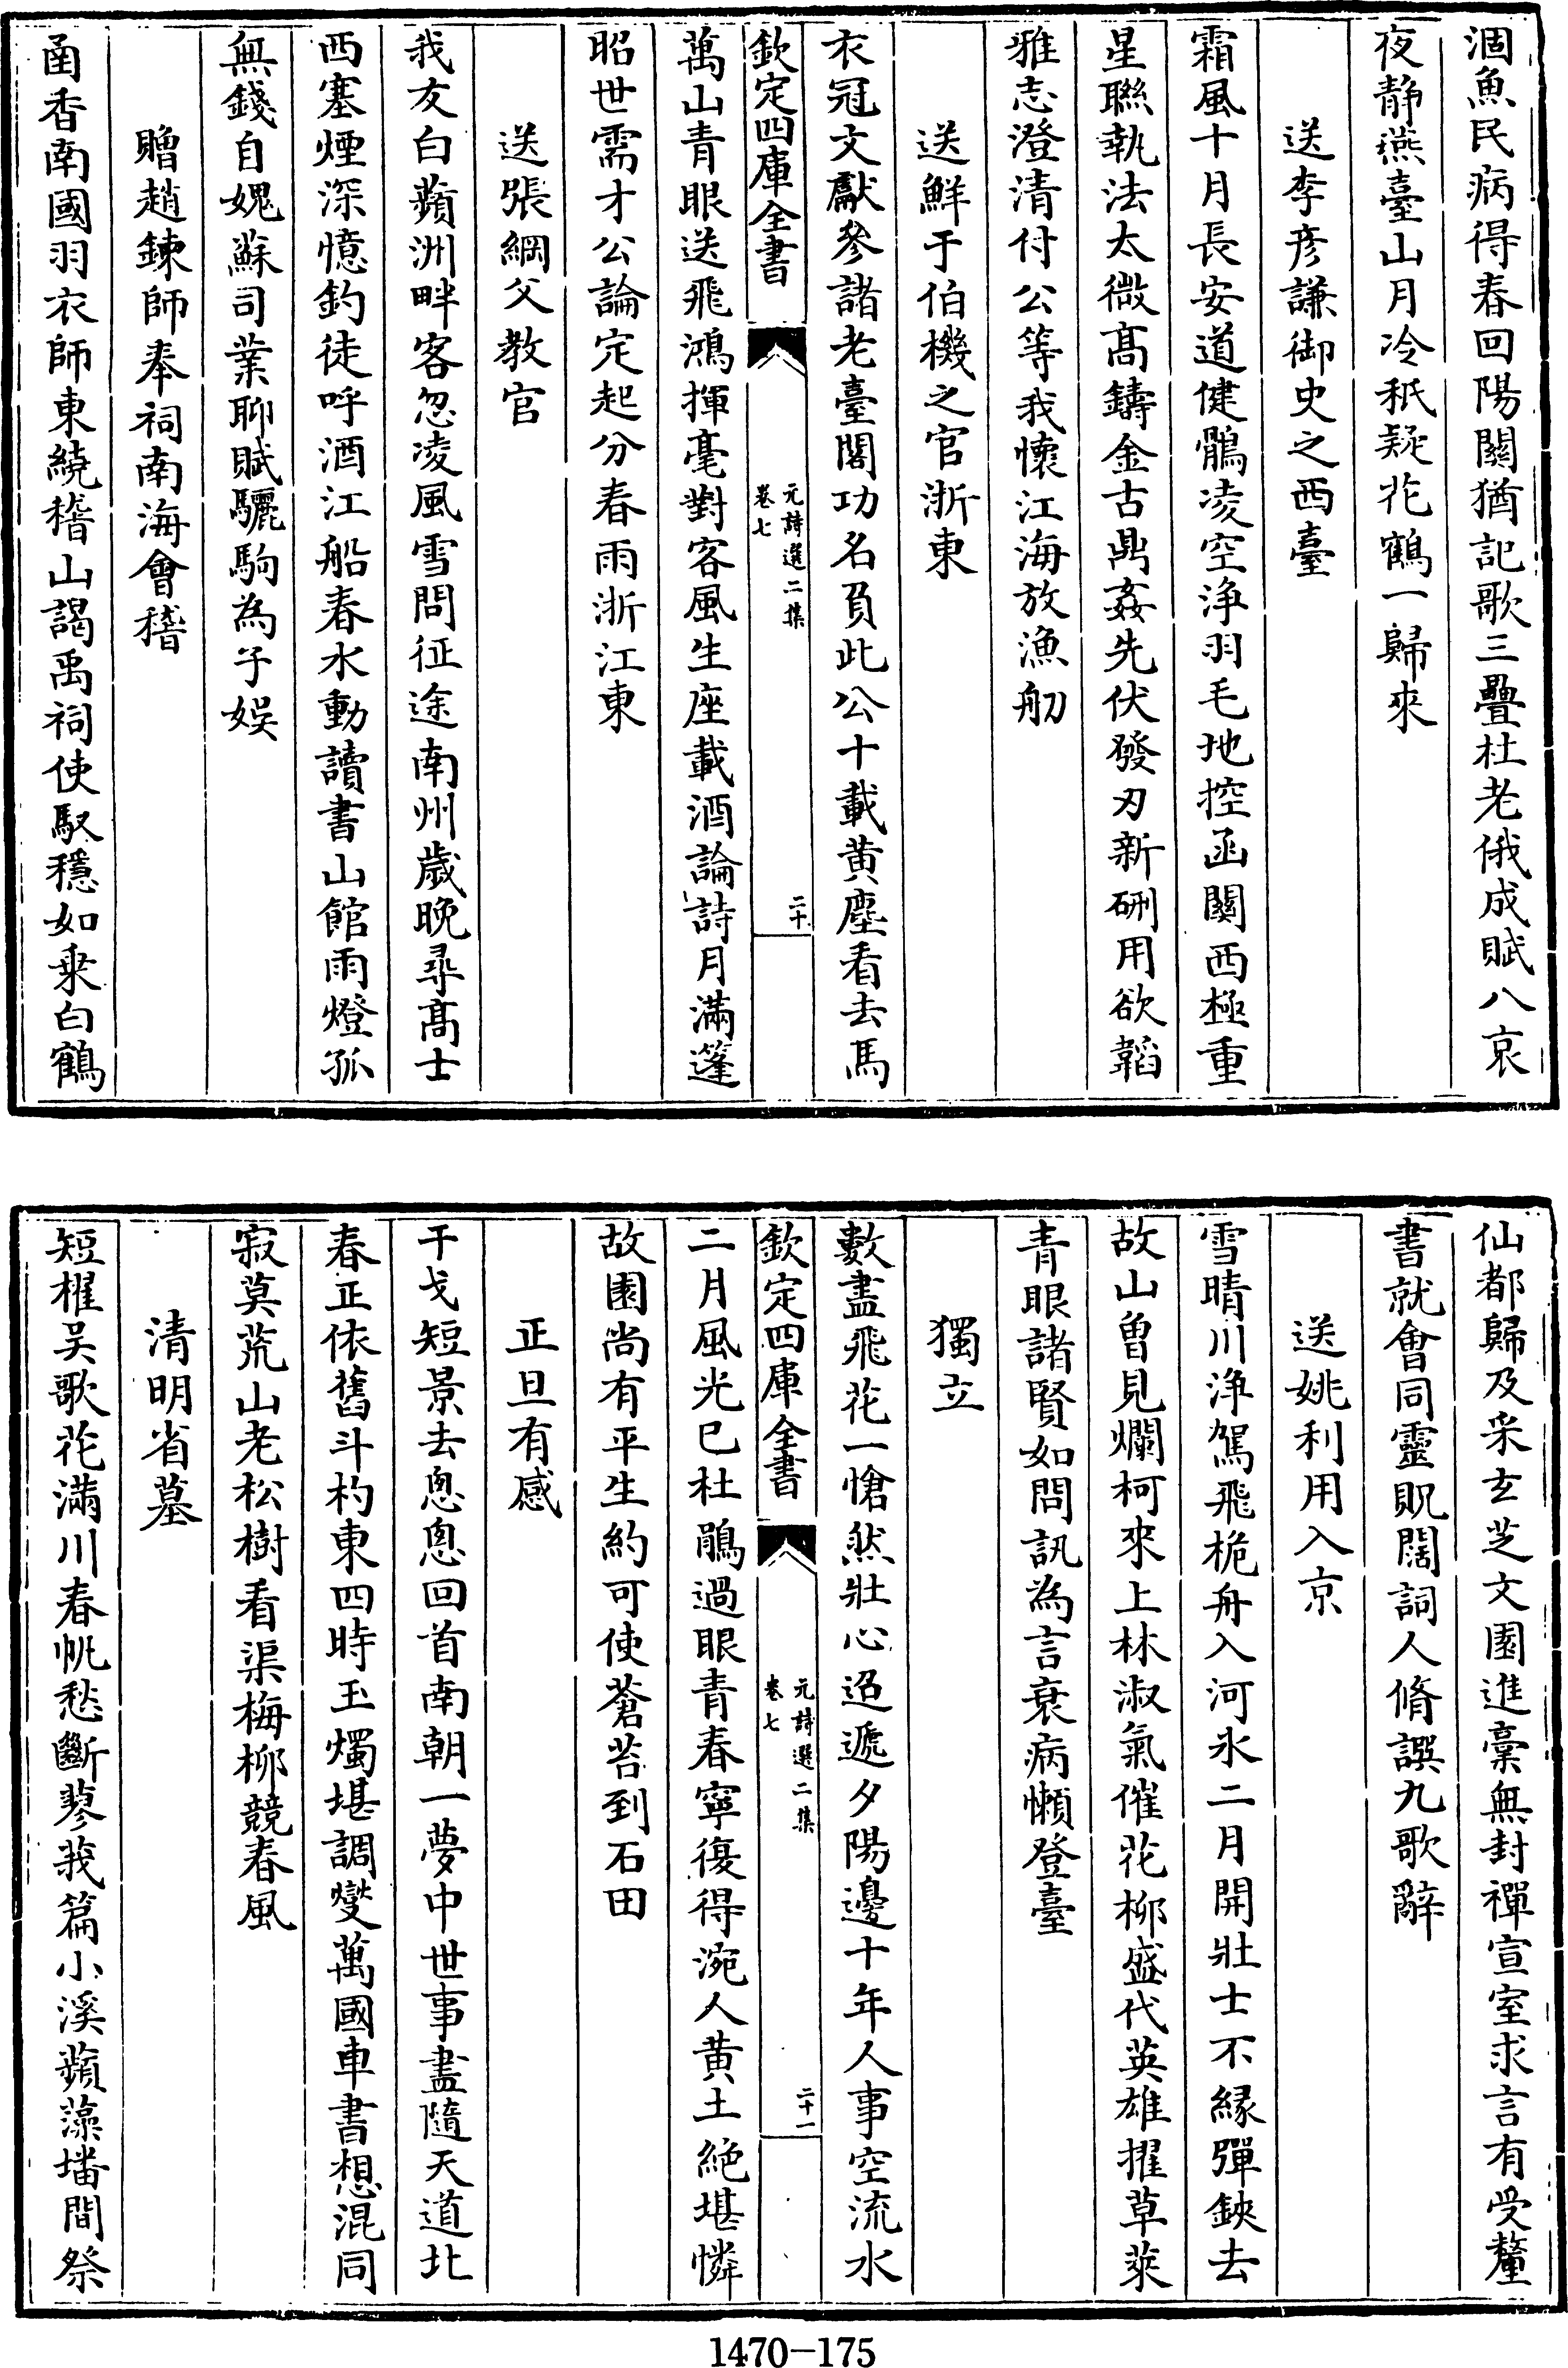 涸魚民病得春回陽關猶記歌三疊杜老俄成賦八哀
夜静燕臺山月冷秖疑花鶴一歸來
送李彦謙御史之西臺
霜風十月長安道健鶻凌空浄羽毛地控函關西極重
星聯執法太微髙鑄金古鼎姦先伏發刃新硎用欲韜
雅志澄清付公等我懷江海放漁舠
送鮮于伯機之官浙東
衣冠文獻參諸老臺閣功名負此公十載黄塵看去馬
欽定四庫全書
元詩選二集
卷七
二十
萬山青眼送飛鴻揮毫對客風生座載酒論詩月滿篷
昭世需才公論定起分春雨浙江東
送張綱父教官
我友白蘋洲畔客忽凌風雪問征途南州歲晚尋髙士
西塞煙深憶釣徒呼酒江船春水動讀書山館雨燈孤
無錢自媿蘇司業聊賦驪駒為子娱
贈趙鍊師奉祠南海會稽
函香南國羽衣師東繞稽山謁禹祠使馭穩如乘白鶴
仙都歸及采玄芝文園進稾無封禪宣室求言有受釐
書就會同靈貺闊詞人脩譔九歌辭
送姚利用入京
雪晴川浄駕飛桅舟入河氷二月開壯士不縁彈鋏去
故山曽見爛柯來上林淑氣催花柳盛代英雄擢草萊
青眼諸賢如問訊為言衰病懶登臺
獨立
數盡飛花一愴然壯心迢遞夕陽邊十年人事空流水
欽定四庫全書
元詩選二集
卷七
二十一
二月風光已杜鵑過眼青春寧復得涴人黄土絶堪憐
故園尚有平生約可使蒼苔到石田
正旦有感
干戈短景去悤悤回首南朝一夢中世事盡隨天道北
春正依舊斗杓東四時玉燭堪調燮萬國車書想混同
寂莫荒山老松樹看渠梅柳競春風
清明省墓
短櫂吴歌花滿川春帆愁斷蓼莪篇小溪蘋藻墦間祭
1470-175